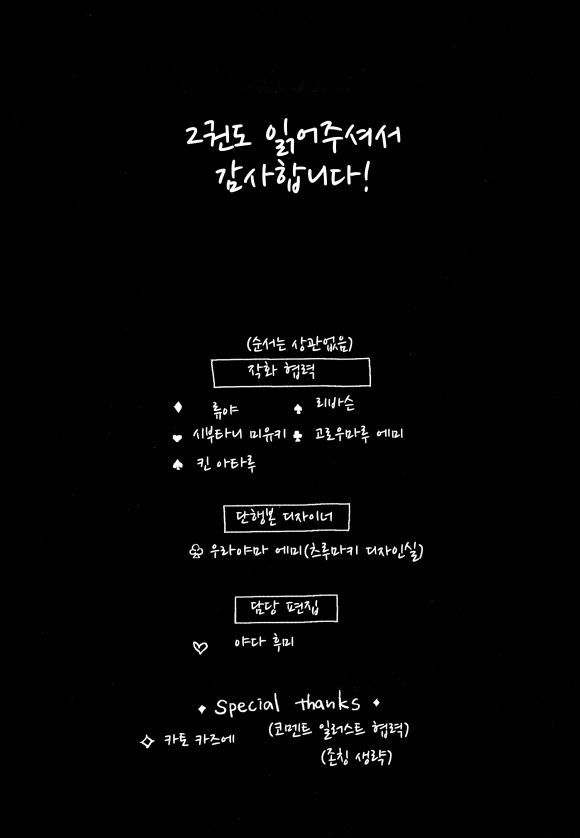 2권도 읽어주셔서
감사합니다!
(순서는 상관없음)
작화 협력
♦ 류야 ♠ 리바슨
♥ 시부타니 미유키 ♣ 고로우마루 에미
♠ 킨 아타루
단행본 디자이너
♧ 우라야마 에미(츠루마키 디자인실)
담당 편집
♡ 야다 후미
♦ Special thanks ♦
✧ 카토 카즈에 (코멘트 일러스트 협력)
(존칭 생략)